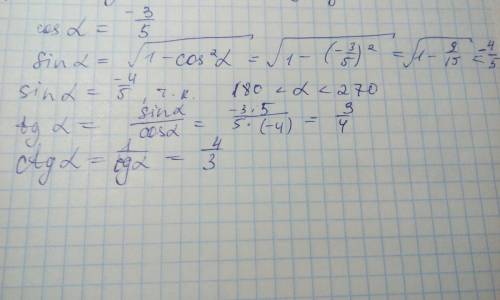 cos α = -3/5
sin α = √(1 - cos²α) = √(1 - (-3/5)²) = √(1 - 9/15) = -4/5
sin α = -4/5, т.к. 180 < α < 270
tg α = sin α/cos α = -3·5/5·(-4) = 3/4
ctg α = 1/tg α = 4/3